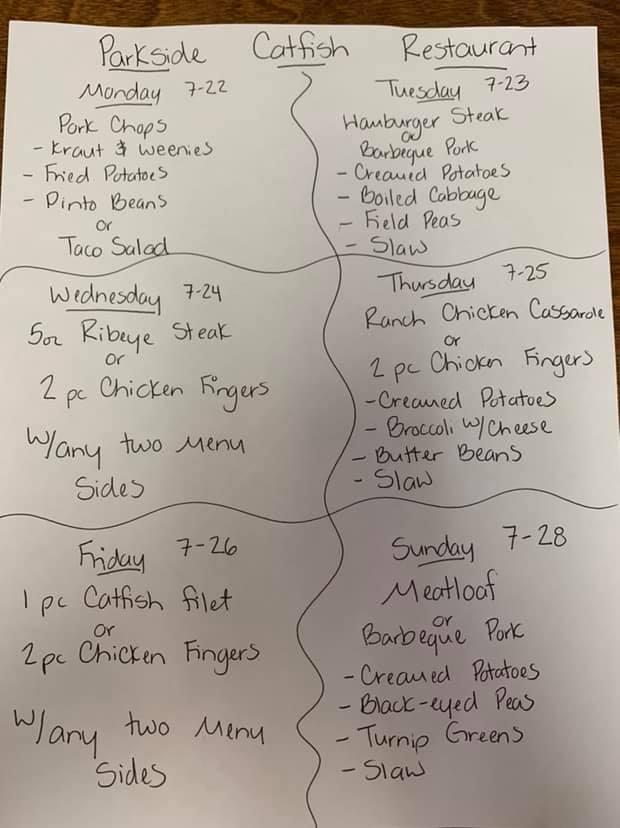 Parkside Catfish Restaurant
Monday 7-22
Pork Chops
- Kraut & Weenies
- Fried Potatoes
- Pinto Beans
or
Taco Salad
Tuesday 7-23
Hamburger Steak
or
Barbeque Pork
- Creamed Potatoes
- Boiled Cabbage
- Field Peas
- Slaw
Wednesday 7-24
5oz Ribeye Steak
or
2 pc Chicken Fingers
W/any two Menu
Sides
Thursday 7-25
Ranch Chicken Cassarole
or
2 pc Chicken Fingers
- Creamed Potatoes
- Broccoli W/Cheese
- Butter Beans
- Slaw
Friday 7-26
1 pc Catfish filet
or
2 pc Chicken Fingers
W/any two Menu
Sides
Sunday 7-28
Meatloaf
or
Barbeque Pork
- Creamed Potatoes
- Black-eyed Peas
- Turnip Greens
- Slaw